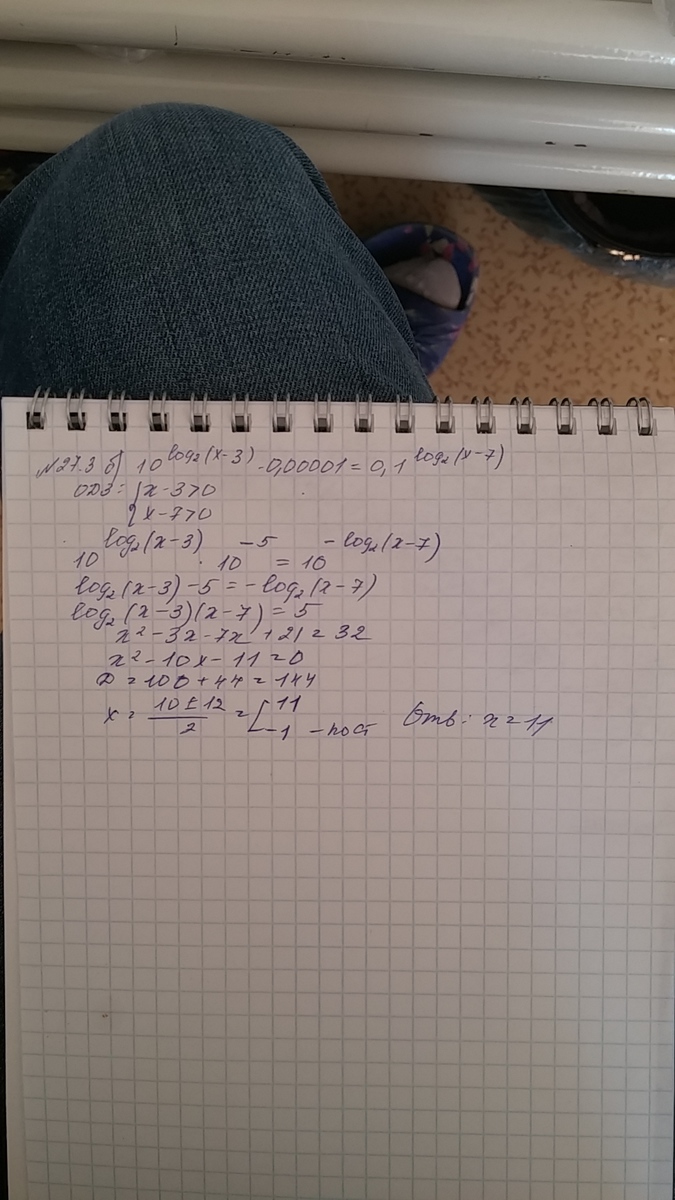 №27.3 б) 10^log₂(x-3) · 0,00001 = 0,1^log₂(x-7)
ОДЗ: { x-3>0
{ x-7>0
10^log₂(x-3) · 10^-5 = 10^-log₂(x-7)
log₂(x-3) - 5 = -log₂(x-7)
log₂(x-3)(x-7) = 5
x² - 3x - 7x + 21 = 32
x² - 10x - 11 = 0
D = 100 + 44 = 144
x = (10 ± 12)/2 = [ 11
[ -1 - пост Отв: x = 11